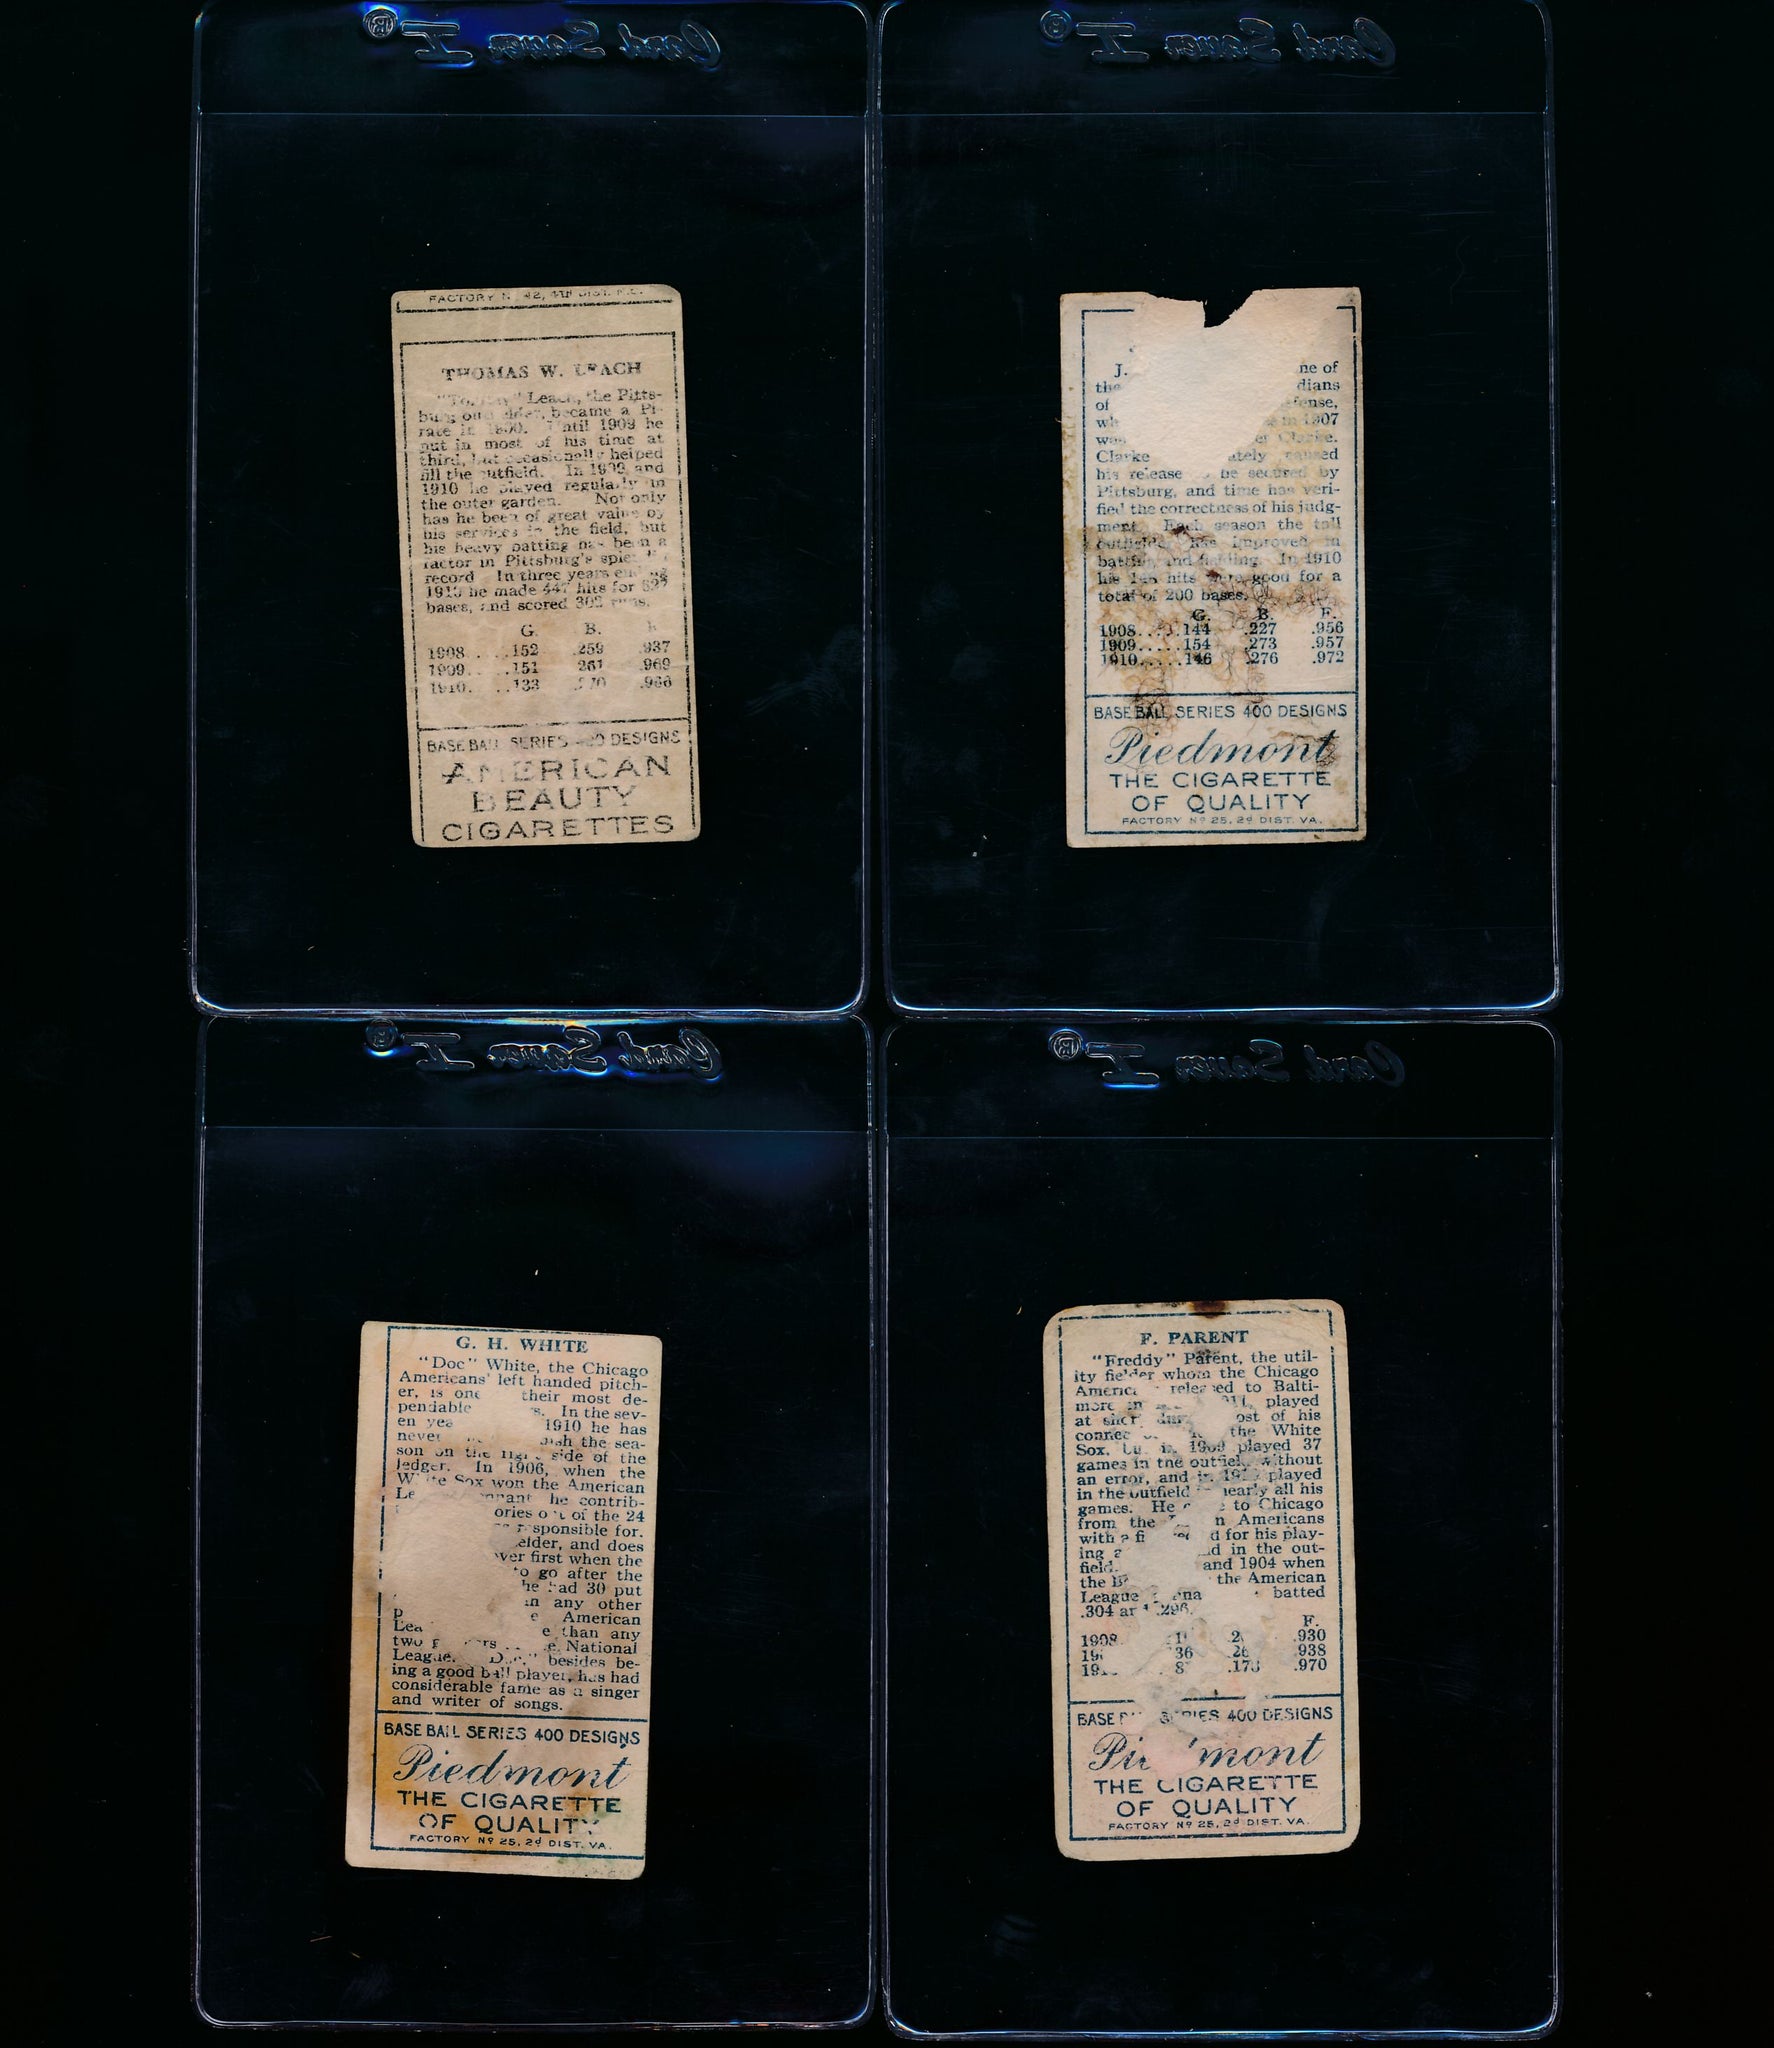 Card Saver I®
FACTORY N 42, 4TH DIST. N.C.
THOMAS W. LEACH
Leach, the Pitts-
burg became a Pi-
rate in 1900. Until 1909 he
put in most of his time at
third, but occasionally helped
fill the outfield. In 1909 and
1910 he played regularly in
the outer garden. Not only
has he been of great value by
his services in the field, but
his heavy batting has been a
factor in Pittsburg's
record In three years
1910 he made 447 hits for
bases, and scored
G. B.
1908.....152 .259 .937
1909....151 261 .969
1910. ..133 .966
BASE BALL SERIES DESIGNS
AMERICAN
BEAUTY
CIGARETTES
Card Saver I®
J. ne of
the dians
of efense,
wh e in 1907
was Clarke.
Clarke ately caused
his release be secured by
Pittsburg, and time has veri-
fied the correctness of his judg-
ment. Each season the tall
outfielder has improved in
batting and fielding. In 1910
his hits were good for a
total of 200 bases.
G. B. F.
1908....144 .227 .956
1909.....154 .273 .957
1910.....146 .276 .972
BASE BALL SERIES 400 DESIGNS
Piedmont
THE CIGARETTE
OF QUALITY
FACTORY Nº 25, 2d DIST. VA.
Card Saver I®
G. H. WHITE
"Doc" White, the Chicago
Americans' left handed pitch-
er, is one their most de-
pendable s. In the sev-
en yea 1910 he has
never the sea-
son on the right side of the
ledger. In 1906, when the
White Sox won the American
Le he contrib-
ories out of the 24
responsible for.
elder, and does
ver first when the
to go after the
he had 30 put
in any other
p e American
Lea e than any
two National
League. "Doc," besides be-
ing a good ball player, has had
considerable fame as a singer
and writer of songs.
BASE BALL SERIES 400 DESIGNS
Piedmont
THE CIGARETTE
OF QUALITY
FACTORY Nº 25, 2d DIST. VA.
Card Saver I®
F. PARENT
"Freddy" Parent, the util-
ity fielder whom the Chicago
America released to Balti-
more in played
at short during ost of his
connec the White
Sox, but in 1909 played 37
games in the outfield without
an error, and in played
in the outfield nearly all his
games. He to Chicago
from the n Americans
with a fi d for his play-
ing a d in the out-
field. and 1904 when
the B the American
League batted
.304 and .296.
F.
1908. .930
36 .26 .938
8 .178 .970
BASE SERIES 400 DESIGNS
Pi mont
THE CIGARETTE
OF QUALITY
FACTORY Nº 25, 2d DIST. VA.